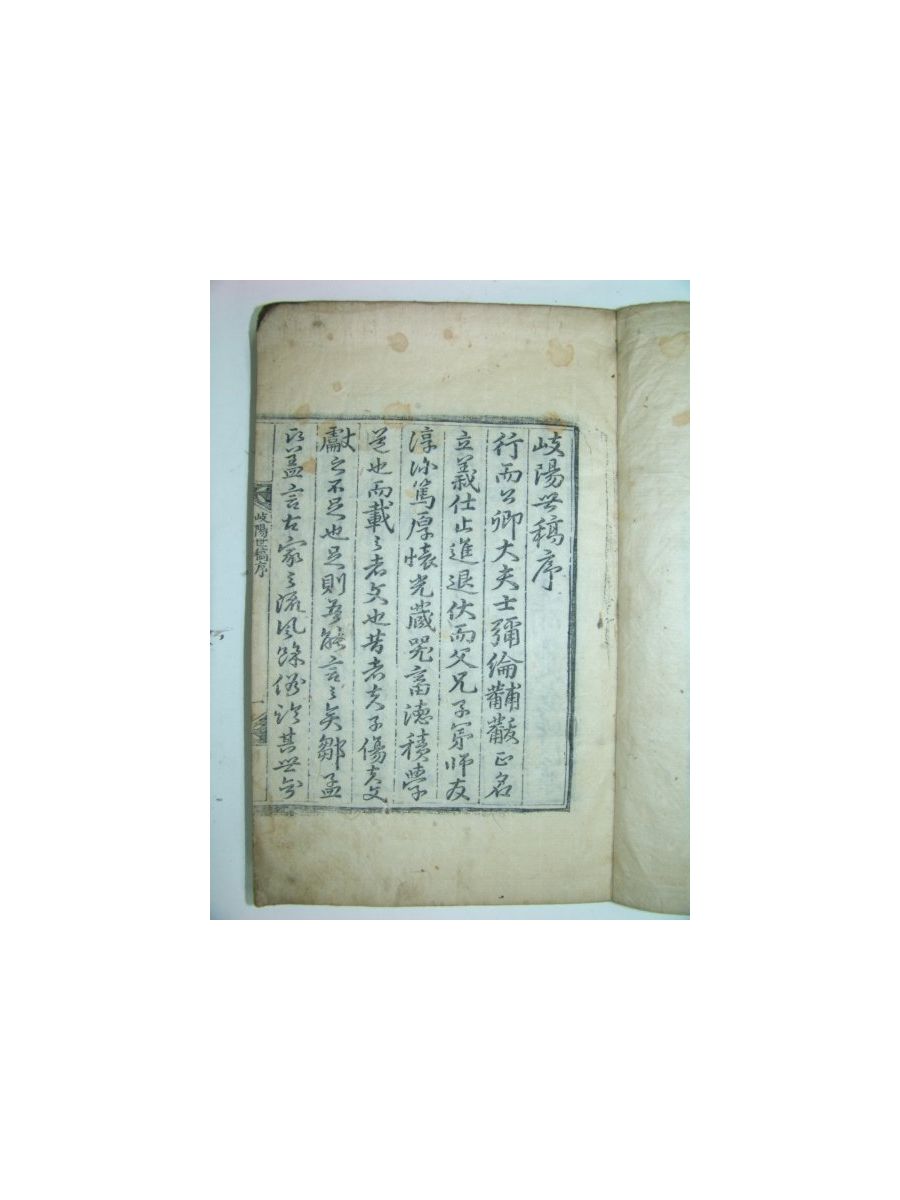 岐陽世稿序
行而公卿大夫士彌綸黼黻正名
立義仕止進退伏而父兄子弟師友
淳深篤厚懷光藏器畜德積學
道也而載之者文也昔者夫子傷夫文
獻之不足也足則吾能言之矣鄒孟
氏盖言古家之流風餘俗其世
岐陽世稿序
一